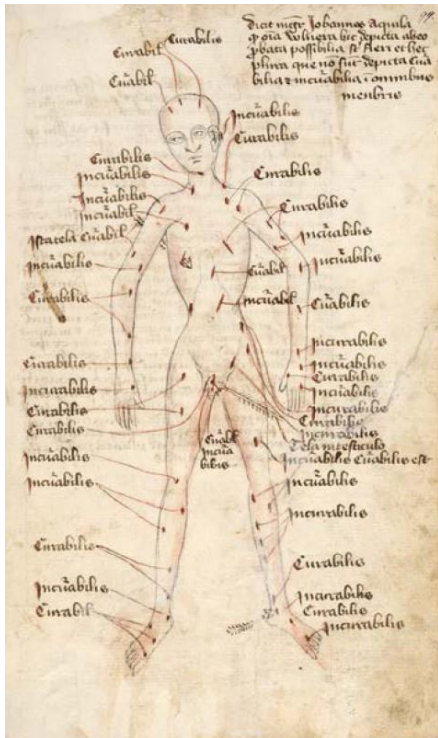 dicit mgr Johannes Aquila
q oia volnera hic depicta absq
pbata possibilia st fieri et hec
plura que no sut depicta Cua
bilia & incuabilia i omnibus
menbris
Curabil
Curabilis
Cuabil
Incuabilis
Curabilis
Curabilis
Incuabilis
Incuabilis
Incuabil
Curabilis
Curabilis
Cuabil
Incuabilis
Incuabilis
Incuabilis
Curabilis
Cuabil
Incuabil
Cuabilis
Curabilis
Incurabilis
Curabilis
Curabilis
Incurabilis
Incuabilis
Curabilis
Incuabilis
Incurabilis
Curabilis
Incurabilis
Tela in testiculo
Incuabilis Cuabilis est
Cuabil
Incua
bilis
Incuabilis
Incuabilis
Incuabilis
Incurabilis
Curabilis
Curabilis
Incuabilis
Curabil
Incurabilis
Curabilis
Incurabilis